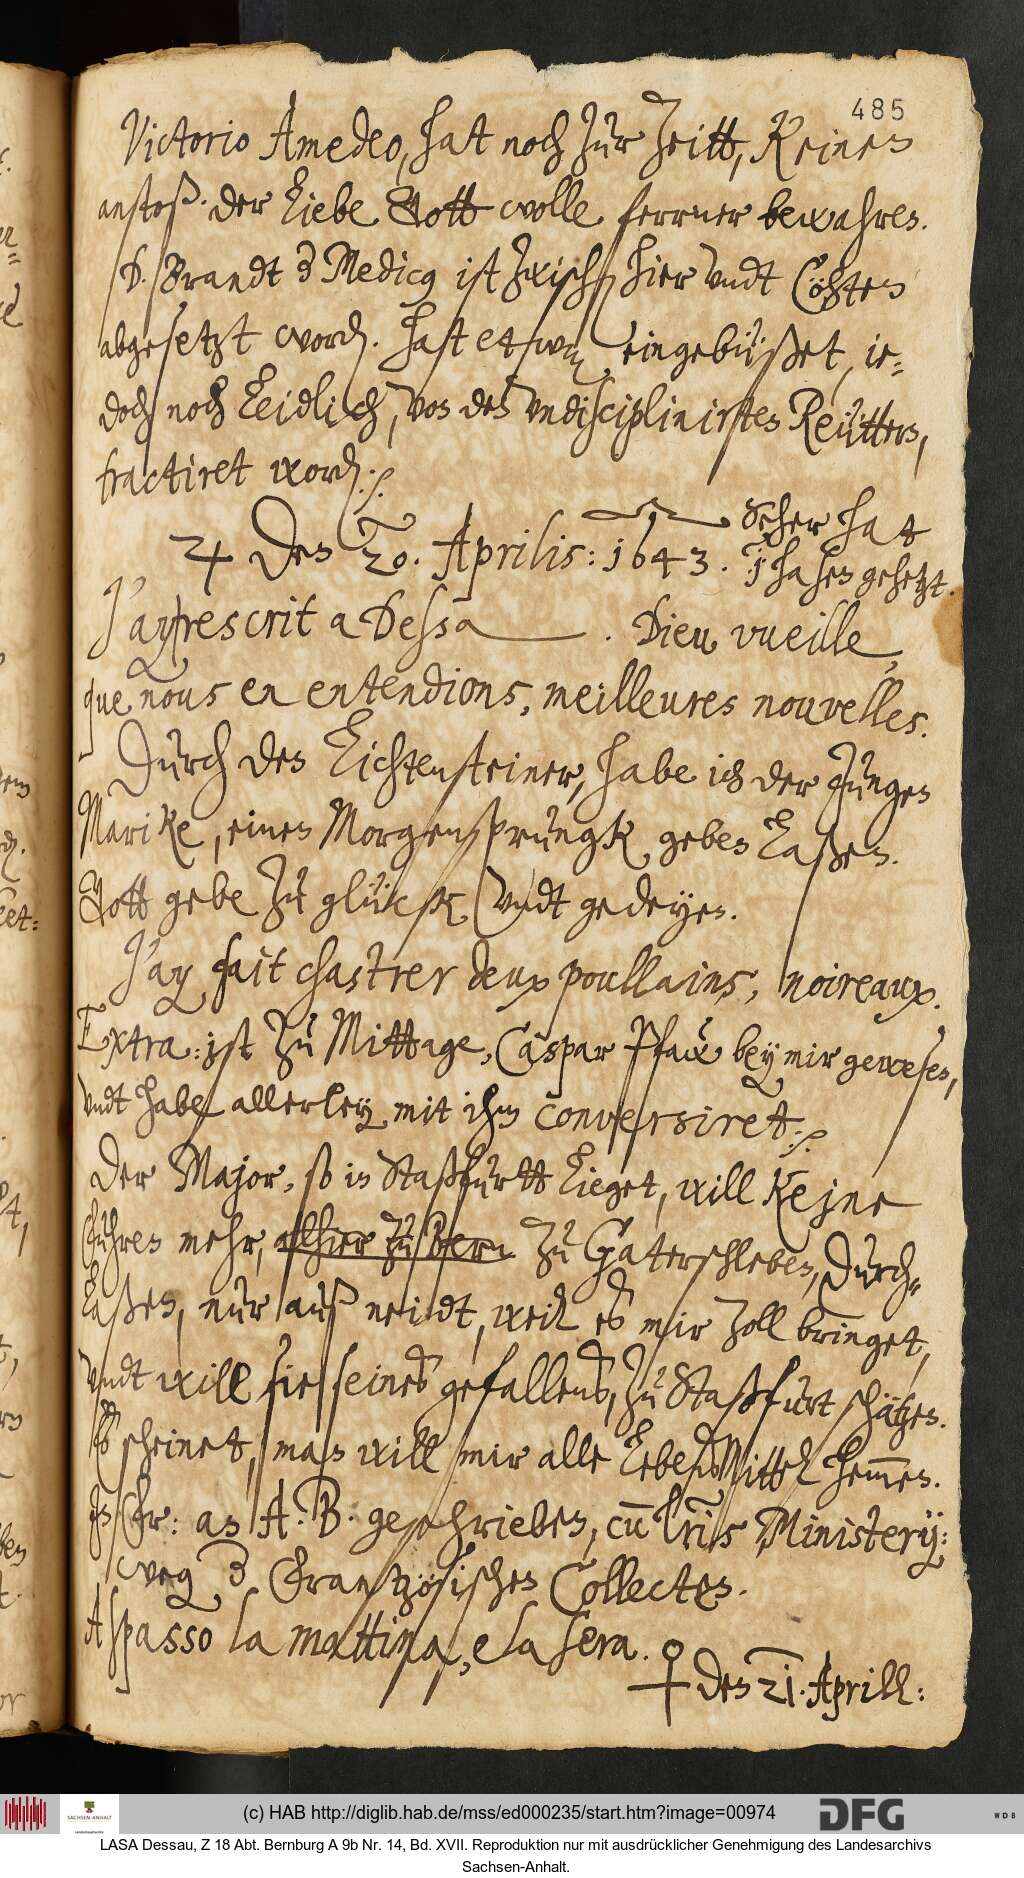 485
Victorio Amedeo, hat noch zur zeitt, keinen
anstoß. der liebe Gott wolle ferrner bewahren.
D. Brandt der Medicus ist zwischen hier undt Cöhten
abgesetzt worden. Hat etwas eingebüßet, ie=
doch noch leidlich, von den undisciplinirten Reüttern,
tractiret worden ./.
♃ den 20. Aprilis: 1643.
hat
1 hasen gehetzt.
J'ay rescrit a Dessa. Dieu vueille,
que nous en entendions, meilleures nouvelles.
Durch den Lichtensteiner, habe ich der Jungen
Marike, einen Morgensprungk geben laßen.
Gott gebe zu glück undt gedeyen.
J'ay fait chastrer deux poullains, noireaux.
Extra: ist zu Mittage, Caspar Pfaw bey mir gewesen,
undt habe allerley mit ihm conversiret ./.
Der Major, so in Staßfurtt lieget, will keine
fuhren mehr, allhier zu Bern zu Gatersleben, durch=
laßen, nur auß neidt, weil es mir zoll bringet,
undt will sie seines gefallens, zu Staßfurt schätzen.
Es scheinet, man will mir alle lebensMittel hemmen.
an A. B. geschrieben, cum literis Ministerij:
weg der Frantzösischen Collecten.
A spasso la mattina, e la sera.
♀ den 21. Aprill:
(c) HAB http://diglib.hab.de/mss/ed000235/start.htm?image=00974
SACHSEN-ANHALT
DFG
WDB
LASA Dessau, Z 18 Abt. Bernburg A 9b Nr. 14, Bd. XVII. Reproduktion nur mit ausdrücklicher Genehmigung des Landesarchivs
Sachsen-Anhalt.